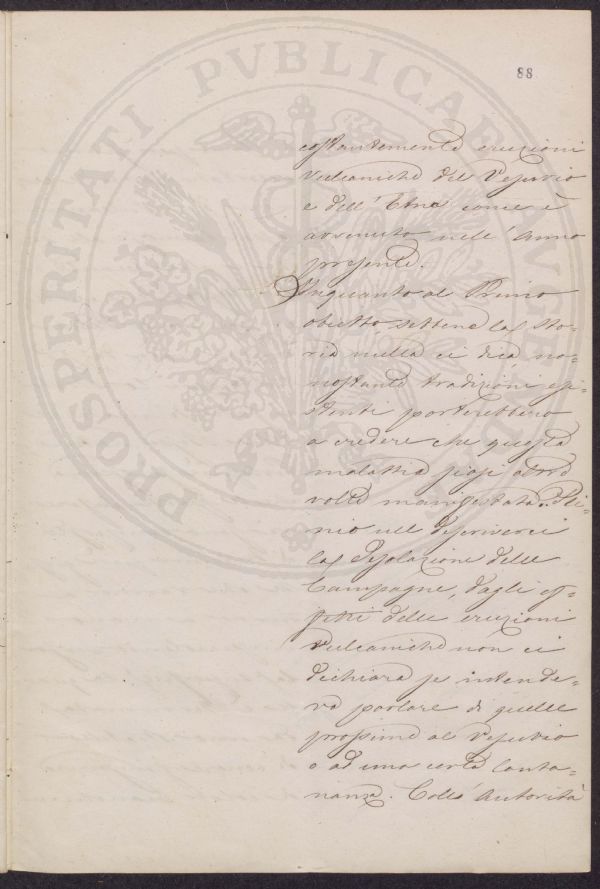 88
PROSPERITATI PVBLICAE AVGENDAE
costantemente eruzioni
vulcaniche del Vesuvio
e dell'Etna come è
avvenuto nell'anno
presente.
Inquanto al Primo
obietto sebbene la sto-
ria nulla ci dica no-
nostante tradizioni esi-
stenti porterebbero
a credere che questa
malattia siasi altre
volte manifestata. Pli-
nio nel descriverci
la desolazione delle
Campagne, dagli ef-
fetti delle eruzioni
vulcaniche non ci
dichiara se intende-
va parlare di quelle
prossime al Vesuvio
o ad una certa lonta-
nanza. Coll'autorità